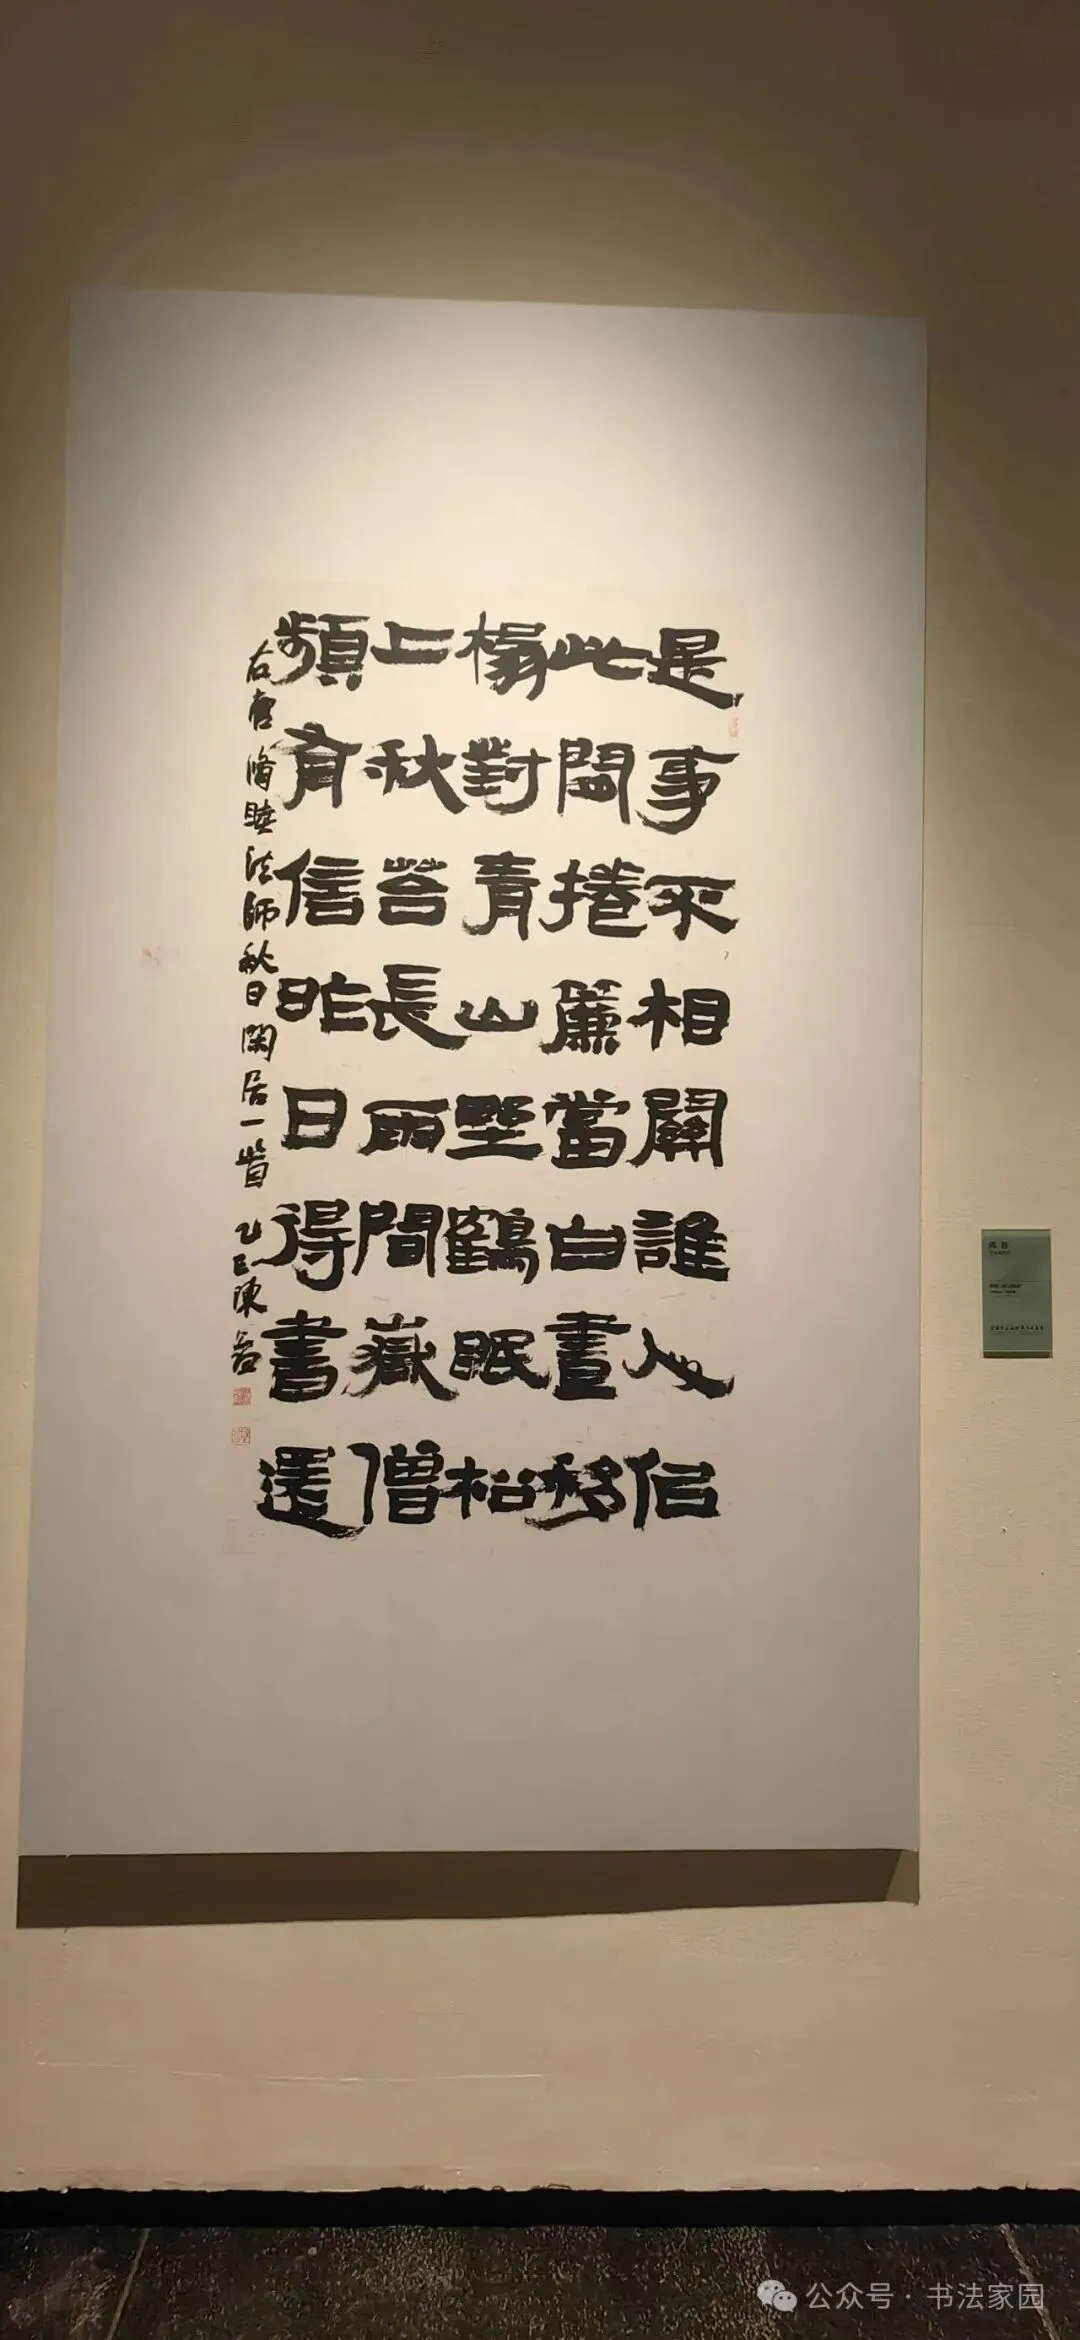 是事不相關誰人佀
此閒捲簾當白晝移
榻對青山埜鶴眠松
上秋苔長雨間嶽僧
頻有信昨日得書還
右唐脩睦法師秋日閑居一首 乙巳陳
公众号 · 书法家园